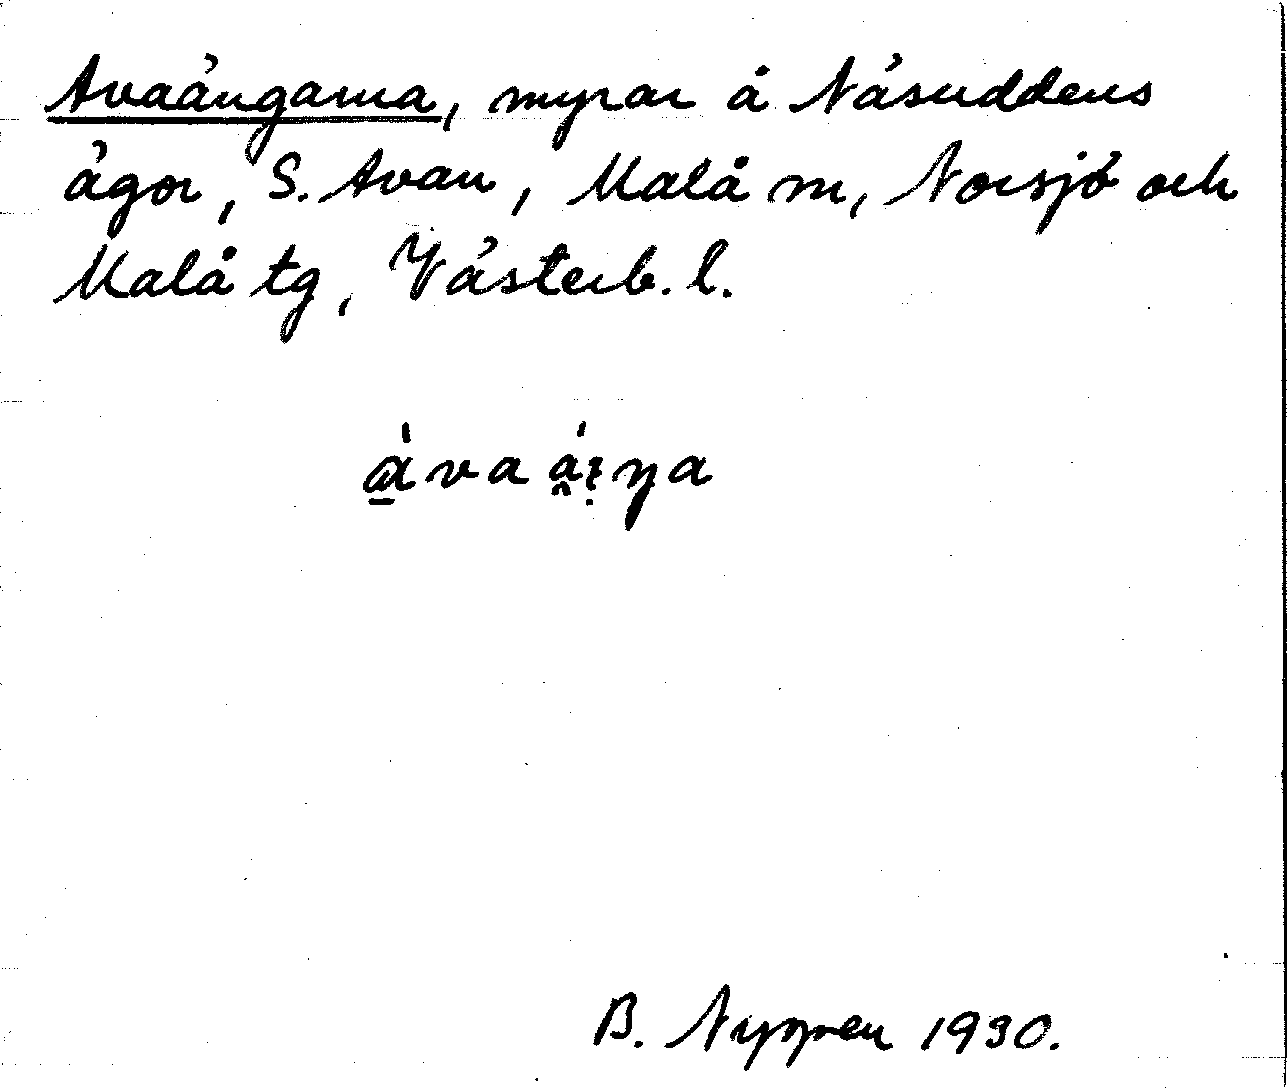 Avaängarna, myrar å Näsuddens
ägor, S. Avan, Malå sn, Norsjö och
Malå tg, Västerb. l.
B. Nygren 1930.